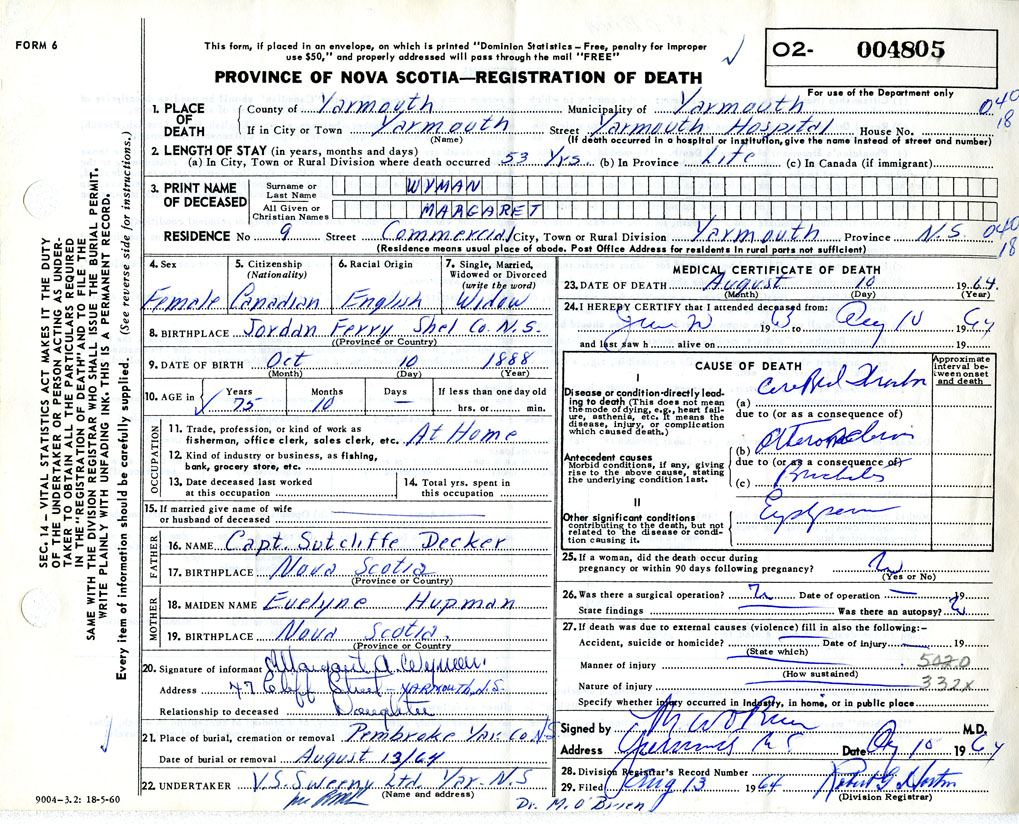 FORM 6
This form, if placed in an envelope, on which is printed "Dominion Statistics – Free, penalty for improper
use $50," and properly addressed will pass through the mail "FREE"
02- 004805
For use of the Department only
PROVINCE OF NOVA SCOTIA—REGISTRATION OF DEATH
SEC. 14 – VITAL STATISTICS ACT MAKES IT THE DUTY
OF THE UNDERTAKER OR PERSON ACTING AS UNDER-
TAKER TO OBTAIN ALL THE PARTICULARS REQUIRED
IN THE "REGISTRATION OF DEATH" AND TO FILE THE
SAME WITH THE DIVISION REGISTRAR WHO SHALL ISSUE THE BURIAL PERMIT.
WRITE PLAINLY WITH UNFADING INK. THIS IS A PERMANENT RECORD.
Every item of information should be carefully supplied. (See reverse side for instructions.)
1. PLACE OF DEATH
County of Yarmouth Municipality of Yarmouth 040
18
If in City or Town Yarmouth Street Yarmouth Hospital House No.
(Name) (If death occurred in a hospital or institution, give the name instead of street and number)
2. LENGTH OF STAY (in years, months and days)
(a) In City, Town or Rural Division where death occurred 53 Yrs (b) In Province Life (c) In Canada (if immigrant)
3. PRINT NAME OF DECEASED
Surname or Last Name WYMAN
All Given or Christian Names MARGARET
RESIDENCE No 9 Street Commercial City, Town or Rural Division Yarmouth Province N.S. 040
18
(Residence means usual place of abode. Post Office Address for residents in rural parts not sufficient)
4. Sex
Female
5. Citizenship (Nationality)
Canadian
6. Racial Origin
English
7. Single, Married, Widowed or Divorced (write the word)
Widow
8. BIRTHPLACE Jordan Ferry Shel Co. N.S.
(Province or Country)
9. DATE OF BIRTH Oct 10 1888
(Month) (Day) (Year)
10. AGE in Years Months Days If less than one day old
75 10 – hrs. or min.
OCCUPATION
11. Trade, profession, or kind of work as
fisherman, office clerk, sales clerk, etc. At Home
12. Kind of industry or business, as fishing,
bank, grocery store, etc.
13. Date deceased last worked
at this occupation
14. Total yrs. spent in
this occupation
15. If married give name of wife
or husband of deceased
FATHER
16. NAME Capt. Sutcliffe Decker
17. BIRTHPLACE Nova Scotia
(Province or Country)
MOTHER
18. MAIDEN NAME Evelyne Hupman
19. BIRTHPLACE Nova Scotia.
(Province or Country)
20. Signature of informant Margaret A. Wyman.
Address 47 Cliff Street – YARMOUTH, N.S.
Relationship to deceased Daughter
21. Place of burial, cremation or removal Pembroke Yar. Co NS
Date of burial or removal August 13/64
22. UNDERTAKER V.S. Sweeny Ltd. Yar. N.S
(Name and address)
9004–3.2: 18-5-60
MEDICAL CERTIFICATE OF DEATH
23. DATE OF DEATH August 10 1964
(Month) (Day) (Year)
24. I HEREBY CERTIFY that I attended deceased from:
1963 to Aug 10 1964
and last saw h alive on 19
CAUSE OF DEATH
Approximate interval between onset and death
I
Disease or condition directly lead-
ing to death (This does not mean
the mode of dying, e.g., heart fail-
ure, asthenia, etc. It means the
disease, injury, or complication
which caused death.)
(a)
due to (or as a consequence of)
Antecedent causes
Morbid conditions, if any, giving
rise to the above cause, stating
the underlying condition last.
(b)
due to (or as a consequence of)
(c)
II
Other significant conditions
contributing to the death, but not
related to the disease or condi-
tion causing it.
25. If a woman, did the death occur during
pregnancy or within 90 days following pregnancy? No
(Yes or No)
26. Was there a surgical operation? Date of operation – 19
State findings Was there an autopsy?
27. If death was due to external causes (violence) fill in also the following:–
Accident, suicide or homicide? Date of injury 19
(State which)
Manner of injury 5020
(How sustained)
Nature of injury 332X
Specify whether injury occurred in industry, in home, or in public place
Signed by M W O'Brien M.D.
Address Yarmouth N S Date Aug 10 1964
28. Division Registrar's Record Number
29. Filed Aug 13 1964 Robert G. Horton
(Division Registrar)
Dr. M. O'Brien